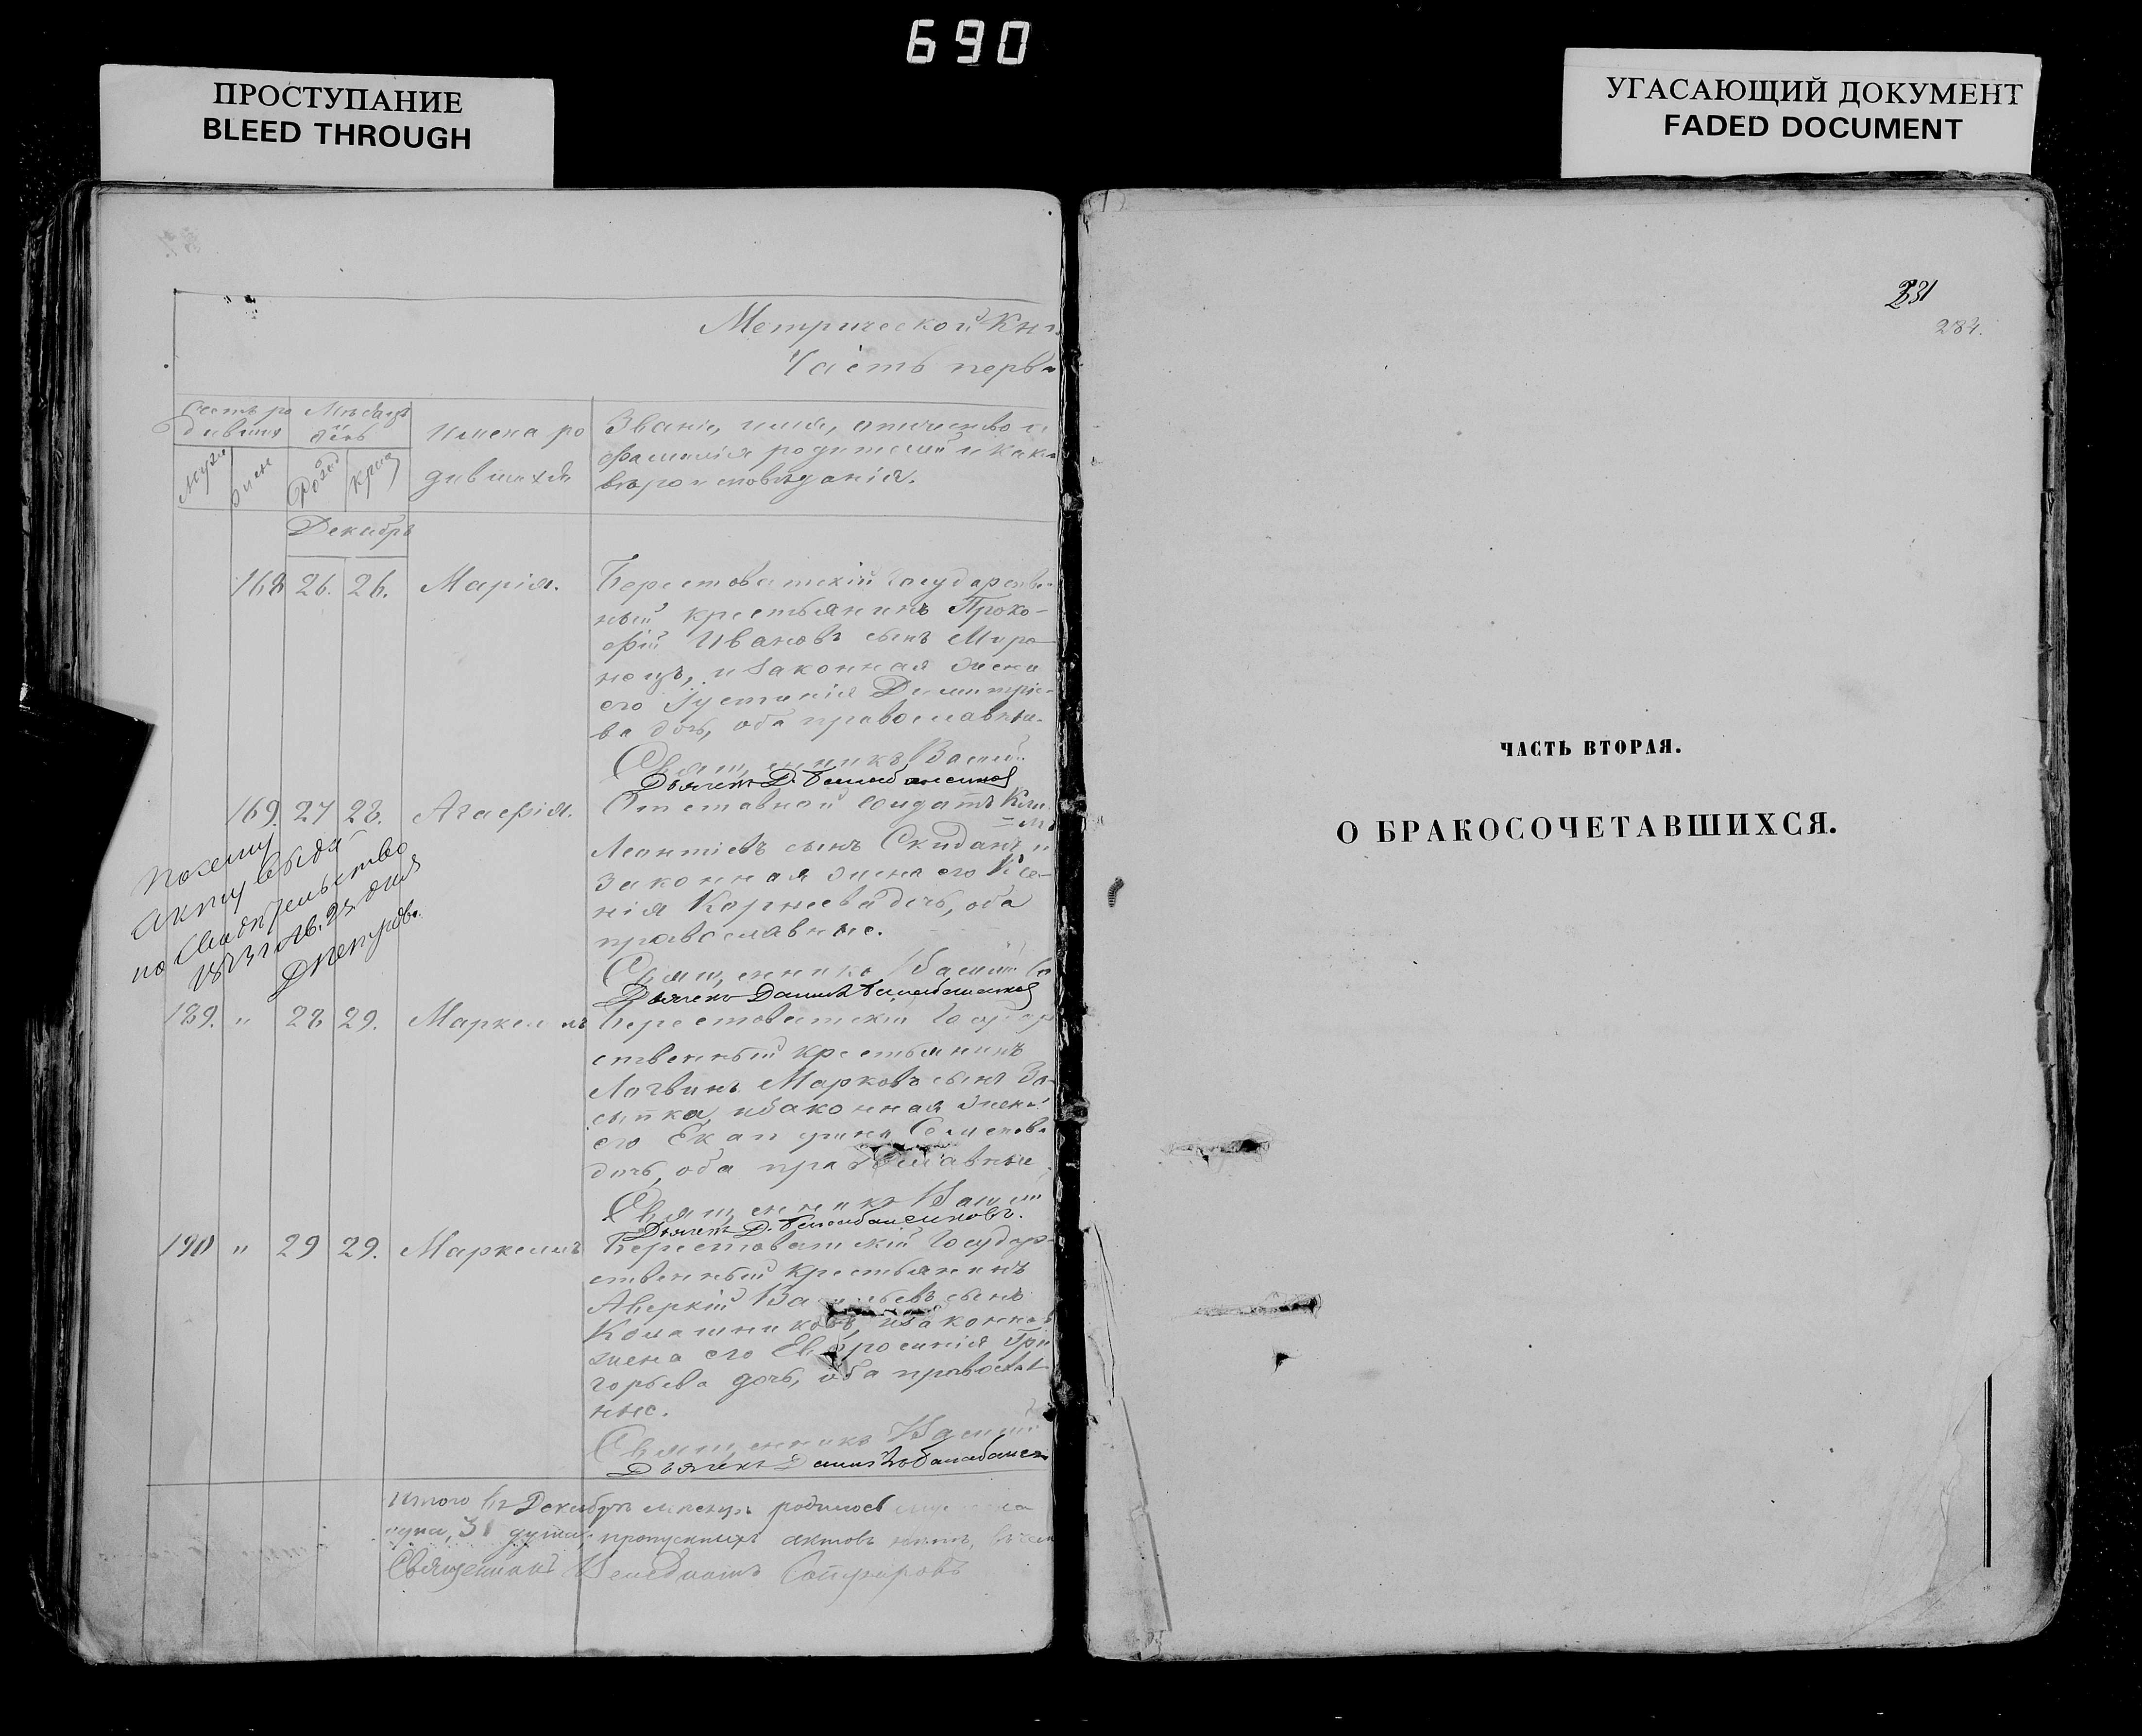 690
ПРОСТУПАНИЕ
BLEED THROUGH
УГАСАЮЩИЙ ДОКУМЕНТ
FADED DOCUMENT
Метрической Кни
Часть перва
Счетъ ро Мѣсяцъ
дившихся день
Имена ро
дившихся
Званіе, имя, отчество и
фамилія родителей и как
вѣроисповѣданія.
Муж Жен Рожд Крещ
Декабрь
168 26. 26. Марія. Берестоватскій Государствен
ный крестьянинъ Проко-
фій Ивановъ сынъ Миро
нецъ, и законная жена
его Іустинія Димитріе-
ва дочь, оба православные.
Священникъ Васил
Дьячекъ Д.
169. 27 28. Агафія. Отставной Солдатъ Кли
=мъ
Леонтіевъ сынъ Скиданъ и
законная жена его Ксе-
нія Корнеева дочь, оба
православные.
Священникъ Васил
Дьячекъ Даніилъ
по сему
акту выда
но Свидѣтельство
Дпетров.
189. " 28. 29. Маркеллъ Берестоватскій Государ
ственный крестьянинъ
Логвинъ Марковъ сынъ За
сыпка, и законная жена
его Екатерина Семенова
дочь, оба православные
Священникъ Васил
Дьячекъ Д.
190 " 29 29. Маркеллъ Берестоватскій Государ-
ственный крестьянинъ
Аверкій Васильевъ сынъ
и законная
жена его Евфросинія Гри
горьева дочь, оба православ
ные.
Священникъ Васил
Дьячекъ Даніилъ
Итого въ Декабрѣ мѣсяцѣ родилось
31 душа; пропускныхъ актовъ нѣтъ,
Священникъ
231
284.
ЧАСТЬ ВТОРАЯ.
О БРАКОСОЧЕТАВШИХСЯ.